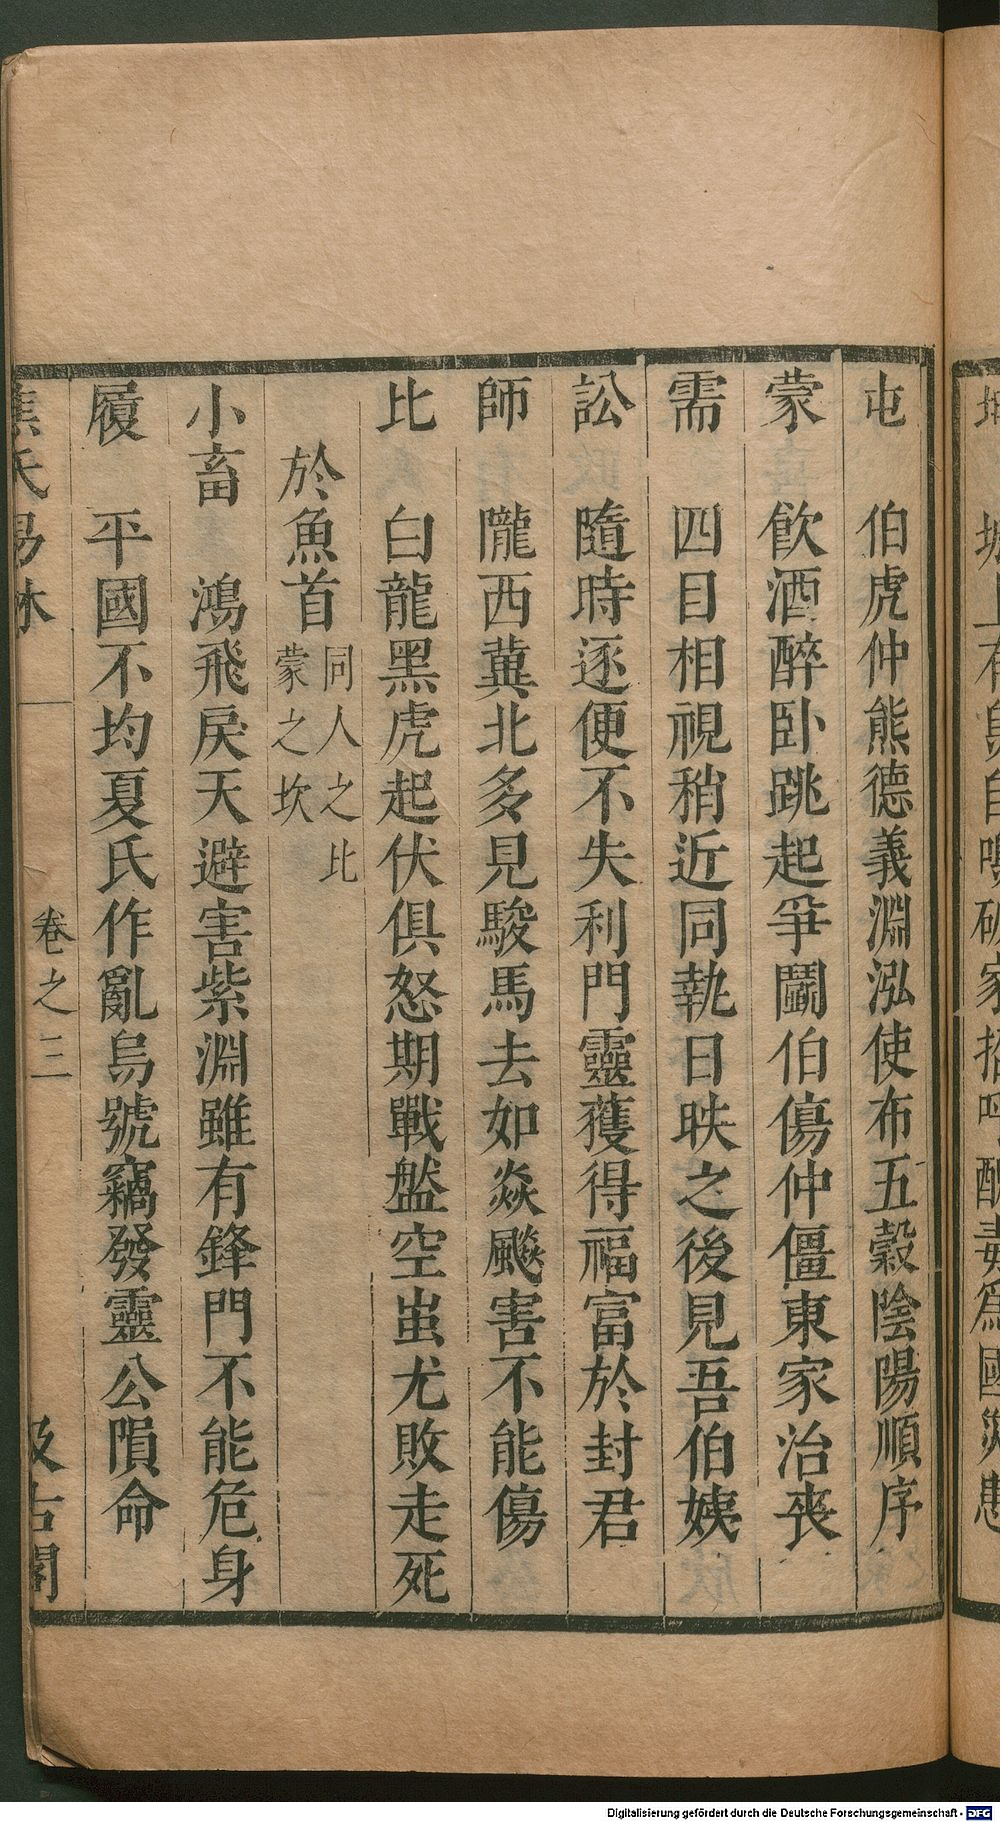 屯　伯虎仲熊德義淵泓使布五穀陰陽順序
蒙　飲酒醉卧跳起爭鬭伯傷仲僵東家治喪
需　四目相視稍近同執日昳之後見吾伯姨
訟　隨時逐便不失利門靈獲得福富於封君
師　隴西冀北多見駿馬去如焱飈害不能傷
比　白龍黑虎起伏俱怒期戰盤空蚩尤敗走死
於魚首
同人之比
蒙之坎
小畜　鴻飛戾天避害紫淵雖有鋒門不能危身
履　平國不均夏氏作亂烏號竊發靈公隕命
焦氏易林
卷之三
汲古閣
Digitalisierung gefördert durch die Deutsche Forschungsgemeinschaft - DFG